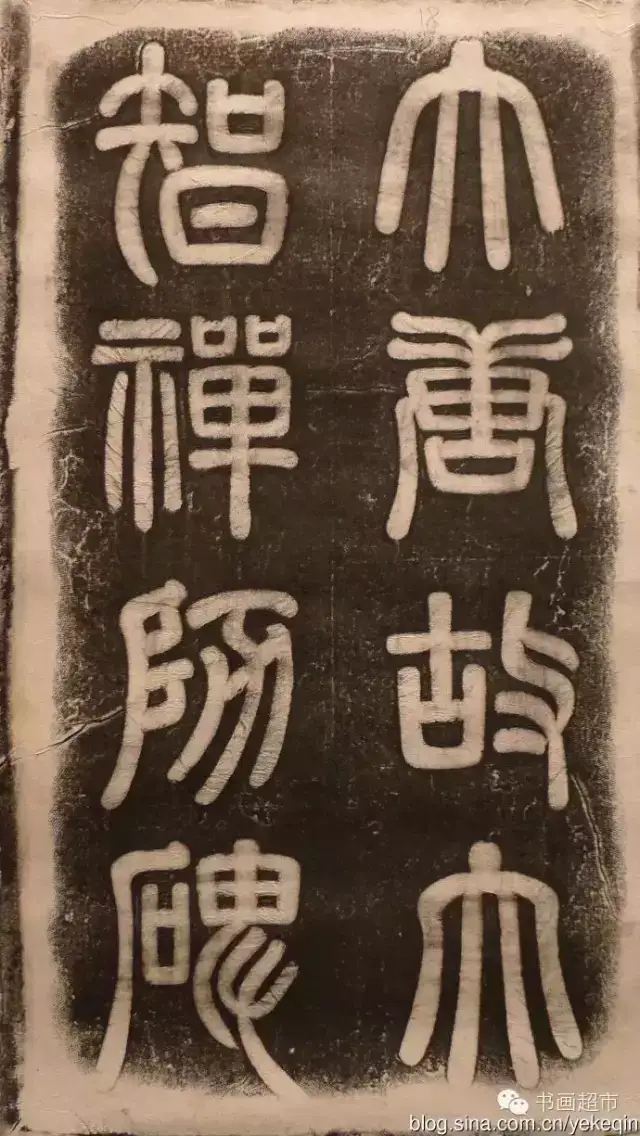 大唐故大
智禪師碑
18
书画超市
blog.sina.com.cn/yekeqin